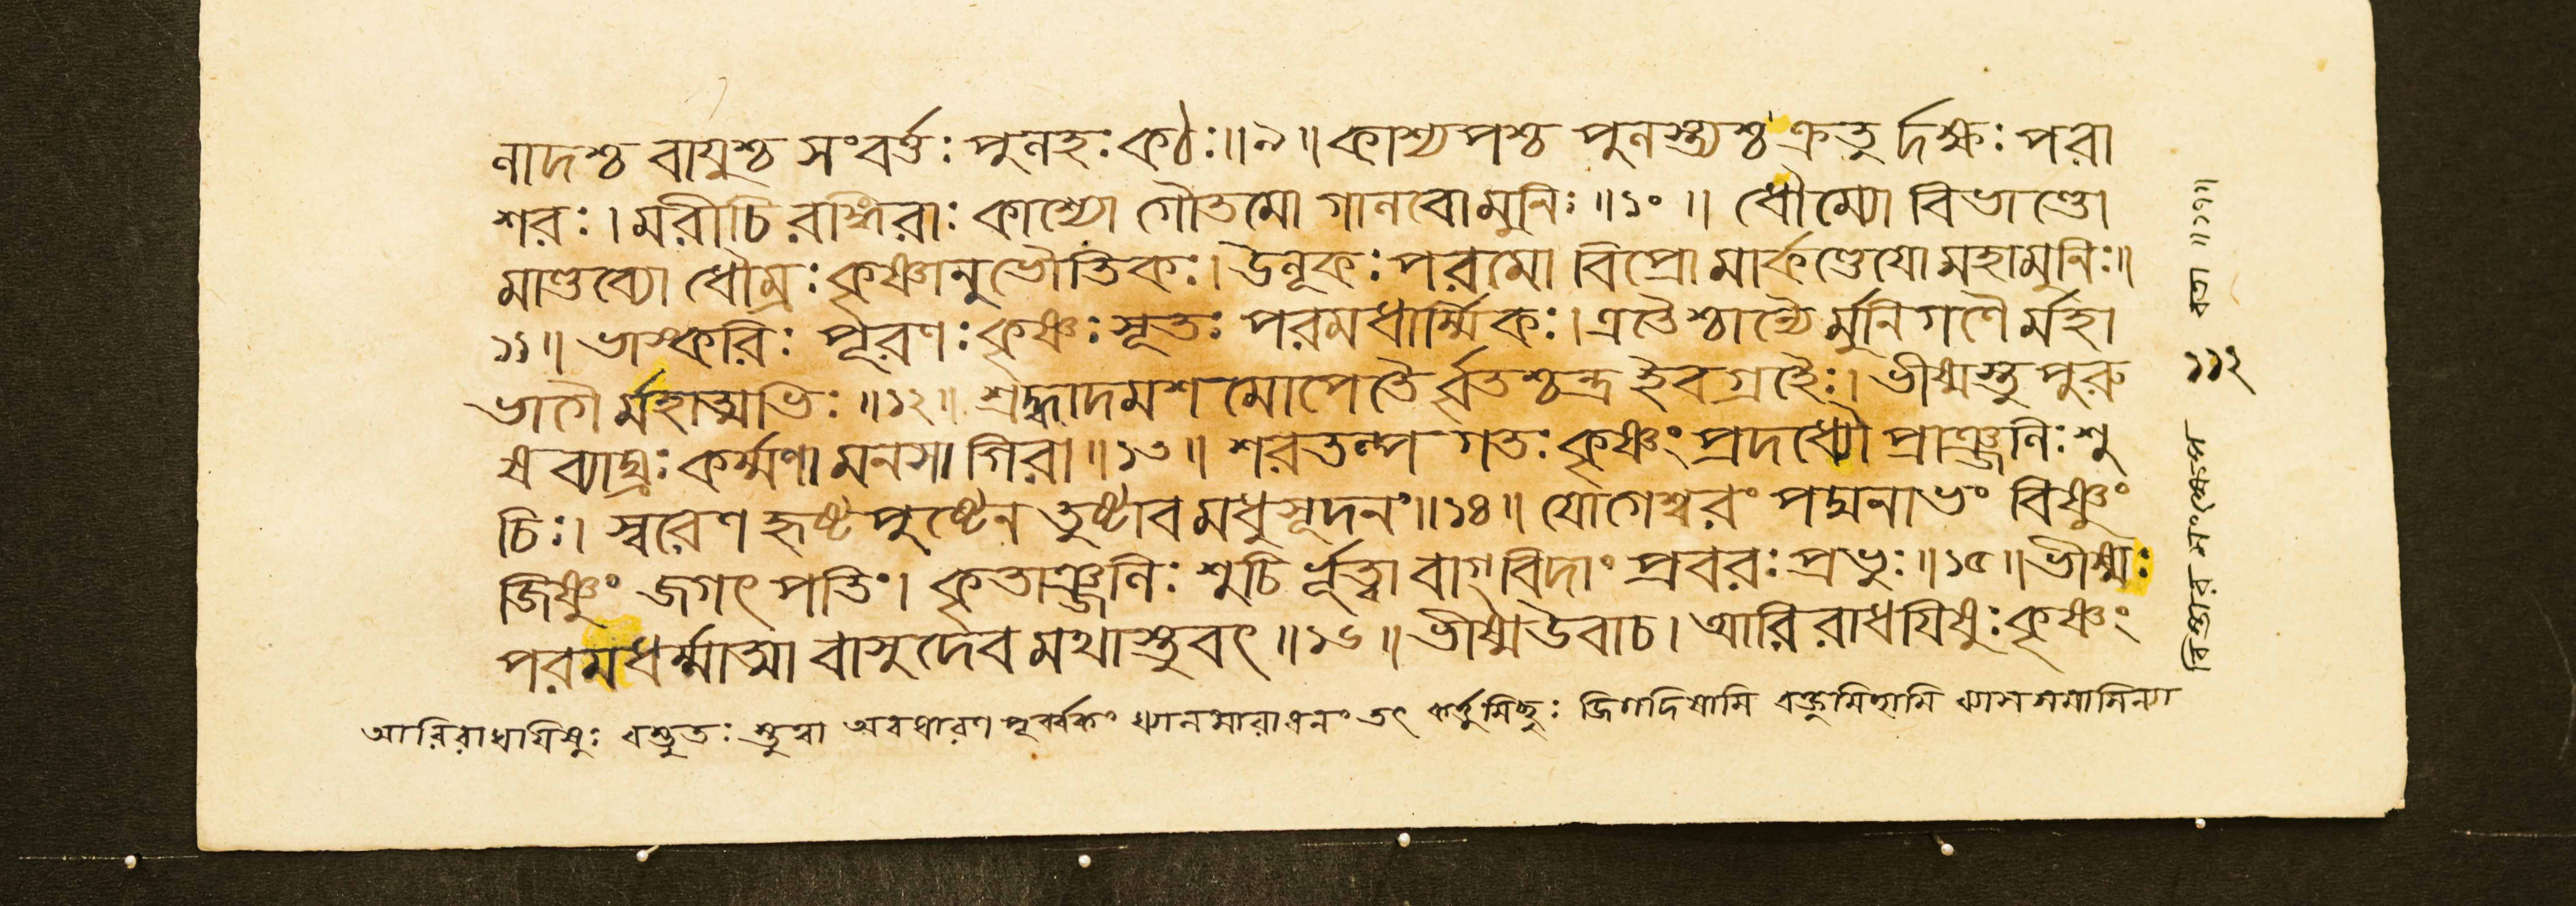 ণাদশ্চ বায়ুশ্চ সংবর্ত্তঃ পুলহঃ কঠঃ॥৯॥ কাশ্যপশ্চ পুলস্ত্যশ্চ ক্রতু র্দক্ষঃ পরা
শরঃ। মরীচি রঙ্গিরাঃ কাশ্যো গৌতমো গালবোমুনিঃ॥১০॥ ধৌম্যো বিভাণ্ডো
মাণ্ডব্যো ধৌম্রঃ কৃষ্ণানুভৌতিকঃ। উলূকঃ পরমো বিপ্রো মার্কণ্ডেযো মহামুনিঃ॥
১১॥ ভাস্করিঃ পূরণঃ কৃষ্ণঃ সূতঃ পরমধার্ম্মিকঃ। এতৈশ্চান্যৈ র্মুনিগণৈ র্মহা
ভাগৈ র্মহাত্মভিঃ॥১২॥ শ্রদ্ধাদমশমোপেতৈ র্বৃতশ্চন্দ্র ইব গ্রহৈঃ। ভীষ্মস্তু পুরু
ষ ব্যাঘ্রঃ কর্ম্মণা মনসা গিরা॥১৩॥ শরতল্প গতঃ কৃষ্ণং প্রদধ্যৌ প্রাঞ্জলিঃ শু
চিঃ। স্বরেণ হৃষ্ট পুষ্টেন তুষ্টাব মধুসূদনং॥১৪॥ যোগেশ্বরং পদ্মনাভং বিষ্ণুং
জিষ্ণুং জগৎ পতিং। কৃতাঞ্জলিঃ শুচি র্ভূত্বা বাগ্বিদাং প্রবরঃ প্রভুঃ॥১৫॥ ভীষ্মঃ
পরমধর্ম্মাত্মা বাসুদেব মথাস্তুবৎ॥১৬॥ ভীষ্মউবাচ। আরিরাধযিষুঃ কৃষ্ণং
আরিরাধযিষুঃ স্তুত্বা অবধারণ পূর্ব্বকং তৎ কর্ত্তুমিচ্ছুঃ জিগদিষামি বক্তুমিচ্ছামি
১১২